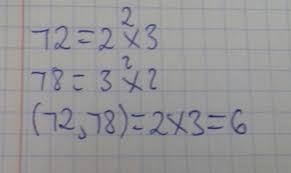 72=2²×3
78=3²×2
(72,78)=2×3=6